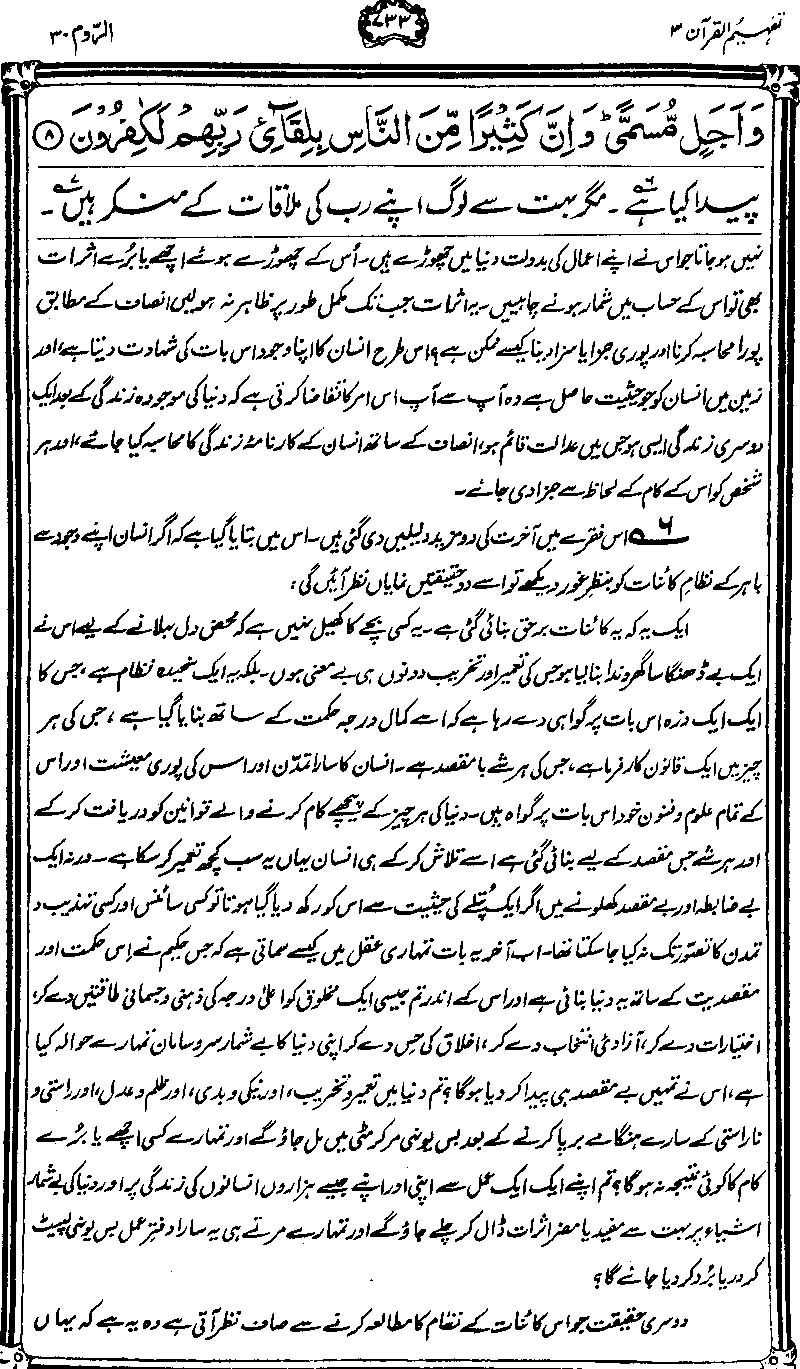 تفہیم القرآن ۳
۷۳۳
الرّوم ۳۰
وَاَجَلٍ مُّسَمًّى ؕ وَاِنَّ كَثِيْرًا مِّنَ النَّاسِ بِلِقَآئِ رَبِّهِمْ لَكٰفِرُوْنَ ۝۸
پیدا کیا ہے۶ ۔ مگر بہت سے لوگ اپنے رب کی ملاقات کے منکر ہیں۷ ۔
نہیں ہو جاتا جو اس نے اپنے اعمال کی بدولت دنیا میں چھوڑے ہیں۔ اُس کے چھوڑے ہوئے اچھے یا بُرے اثرات
بھی تو اس کے حساب میں شمار ہونے چاہییں۔ یہ اثرات جب تک مکمل طور پر ظاہر نہ ہولیں انصاف کے مطابق
پورا محاسبہ کرنا اور پوری جزا یا سزا دینا کیسے ممکن ہے؟ اس طرح انسان کا اپنا وجود اس بات کی شہادت دیتا ہے، اور
زمین میں انسان کو جو حیثیت حاصل ہے وہ آپ سے آپ اس امر کا تقاضا کرتی ہے کہ دنیا کی موجودہ زندگی کے بعد ایک
دوسری زندگی ایسی ہو جس میں عدالت قائم ہو، انصاف کے ساتھ انسان کے کارنامۂ زندگی کا محاسبہ کیا جائے، اور ہر
شخص کو اس کے کام کے لحاظ سے جزا دی جائے۔
۶ اس فقرے میں آخرت کی دو مزید دلیلیں دی گئی ہیں۔ اس میں بتایا گیا ہے کہ اگر انسان اپنے وجود سے
باہر کے نظامِ کائنات کو بنظرِ غور دیکھے تو اسے دو حقیقتیں نمایاں نظر آئیں گی:
ایک یہ کہ یہ کائنات برحق بنائی گئی ہے۔ یہ کسی بچے کا کھیل نہیں ہے کہ محض دل بہلانے کے لیے اس نے
ایک بے ڈھنگا سا گھروندا بنا لیا ہو جس کی تعمیر اور تخریب دونوں ہی بے معنی ہوں۔ بلکہ یہ ایک سنجیدہ نظام ہے، جس کا
ایک ایک ذرہ اس بات پر گواہی دے رہا ہے کہ اسے کمال درجہ حکمت کے ساتھ بنایا گیا ہے، جس کی ہر
چیز میں ایک قانون کارفرما ہے، جس کی ہر شے با مقصد ہے۔ انسان کا سارا تمدّن اور اس کی پوری معیشت اور اس
کے تمام علوم و فنون خود اس بات پر گواہ ہیں۔ دنیا کی ہر چیز کے پیچھے کام کرنے والے قوانین کو دریافت کر کے
اور ہر شے جس مقصد کے لیے بنائی گئی ہے اسے تلاش کر کے ہی انسان یہاں یہ سب کچھ تعمیر کر سکا ہے۔ ورنہ ایک
بے ضابطہ اور بے مقصد کھلونے میں اگر ایک پُتلے کی حیثیت سے اس کو رکھ دیا گیا ہوتا تو کسی سائنس اور کسی تہذیب و
تمدن کا تصوّر تک نہ کیا جا سکتا تھا۔ اب آخر یہ بات تمہاری عقل میں کیسے سماتی ہے کہ جس حکیم نے اِس حکمت اور
مقصدیت کے ساتھ یہ دنیا بنائی ہے اور اس کے اندر تم جیسی ایک مخلوق کو اعلیٰ درجہ کی ذہنی و جسمانی طاقتیں دے کر،
اختیارات دے کر، آزادیٔ انتخاب دے کر، اخلاق کی حِس دے کر اپنی دنیا کا بے شمار سروسامان تمہارے حوالہ کیا
ہے، اس نے تمہیں بے مقصد ہی پیدا کر دیا ہوگا؟ تم دنیا میں تعمیر و تخریب، اور نیکی و بدی، اور ظلم و عدل، اور راستی و
ناراستی کے سارے ہنگامے برپا کرنے کے بعد بس یونہی مر کر مٹی میں مل جاؤ گے اور تمہارے کسی اچھے یا بُرے
کام کا کوئی نتیجہ نہ ہوگا؟ تم اپنے ایک ایک عمل سے اپنی اور اپنے جیسے ہزاروں انسانوں کی زندگی پر اور دنیا کی بے شمار
اشیاء پر بہت سے مفید یا مضر اثرات ڈال کر چلے جاؤ گے اور تمہارے مرتے ہی یہ سارا دفترِ عمل بس یونہی لپیٹ
کر دریا بُرد کر دیا جائے گا؟
دوسری حقیقت جو اس کائنات کے نظام کا مطالعہ کرنے سے صاف نظر آتی ہے وہ یہ ہے کہ یہاں